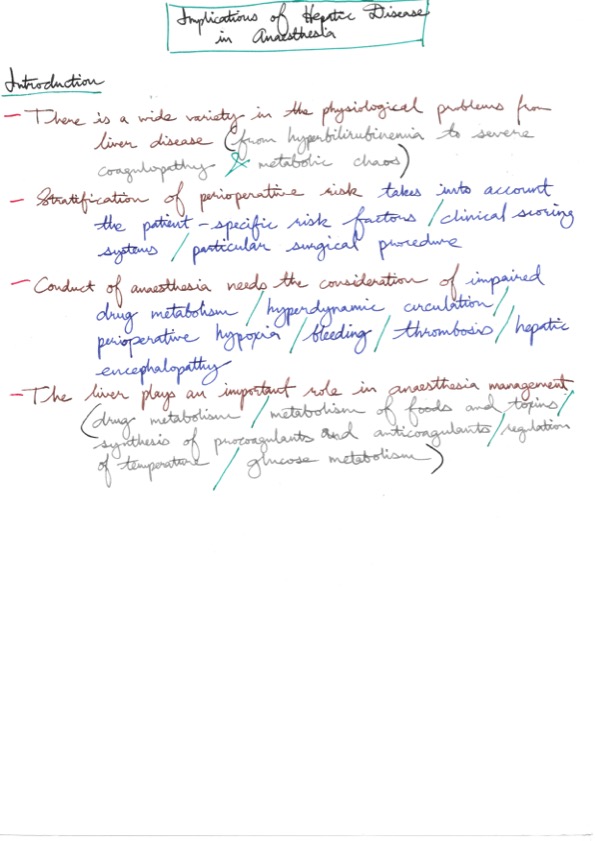 Implications of Hepatic Disease
in Anaesthesia
Introduction
- There is a wide variety in the physiological problems from
liver disease (from hyperbilirubinemia to severe
coagulopathy & metabolic chaos)
- Stratification of perioperative risk takes into account
the patient-specific risk factors / clinical scoring
systems / particular surgical procedure
- Conduct of anaesthesia needs the consideration of impaired
drug metabolism / hyperdynamic circulation /
perioperative hypoxia / bleeding / thrombosis / hepatic
encephalopathy
- The liver plays an important role in anaesthesia management
(drug metabolism / metabolism of foods and toxins /
synthesis of procoagulants and anticoagulants / regulation
of temperature / glucose metabolism)